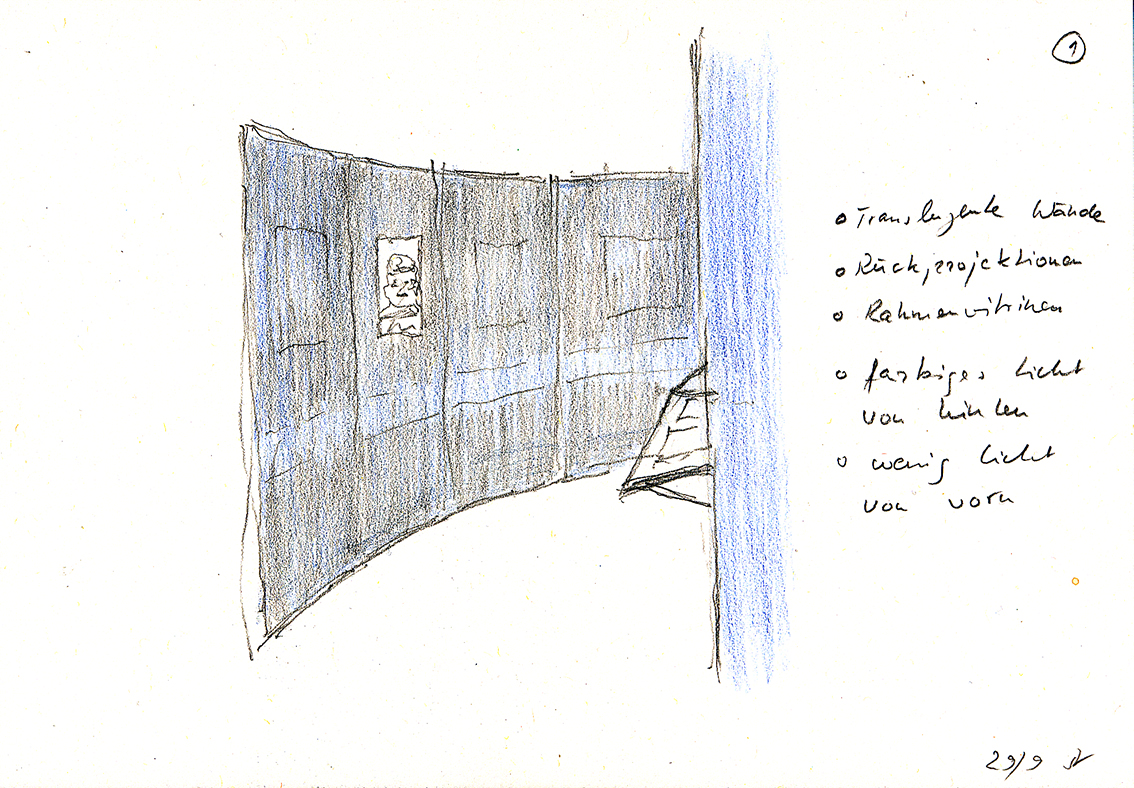 1
Transluzente Wände
Rückprojektionen
Rahmenvitrinen
farbiges Licht
von hinten
wenig Licht
von vorn
29/9